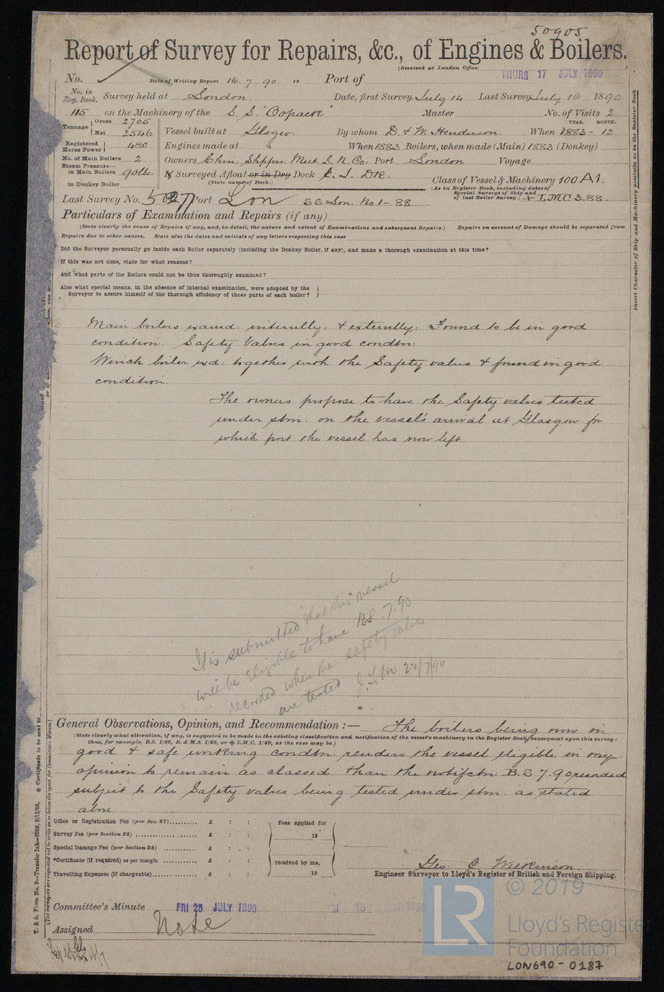 50905
Report of Survey for Repairs, &c., of Engines & Boilers.
(Received at London Office,
No. Date of Writing Report 16.7.90 Port of THURS 17 JULY 1890
No. in Reg. Book. Survey held at London Date, first Survey July 14 Last Survey July 16 1890
115 on the Machinery of the S.S. "Oopack" Master No. of Visits 2
Tonnage Gross 2705 Net 2546 Vessel built at Glasgow By whom D. & W. Henderson When 1883 - 12
YEAR. MONTH.
Registered Horse Power 480 Engines made at When 1883 Boilers, when made (Main) 1883 (Donkey)
No. of Main Boilers 2 Owners China Shippers Mut. S. N. Co. Port London Voyage
Steam Pressure— in Main Boilers 90 lbs. If Surveyed Afloat or in Dry Dock
(State name of Dock.)
Class of Vessel & Machinery 100 A1.
(As in Register Book, including dates of Special Surveys of Ship and of last Boiler Survey) + LMC 3.88.
in Donkey Boiler
Last Survey No. Port Lon SS Lon. No 1 - 88
Particulars of Examination and Repairs (if any)
(State clearly the cause of Repairs if any, and, in detail, the nature and extent of Examinations and subsequent Repairs.) Repairs on account of Damage should be separated from
Repairs due to other causes. State also the dates and initials of any letters respecting this case
Did the Surveyor personally go inside each Boiler separately (including the Donkey Boiler, if any), and make a thorough examination at this time?
If this was not done, state for what reasons?
And what parts of the Boilers could not be thus thoroughly examined?
Also what special means, in the absence of internal examination, were adopted by the
Surveyor to assure himself of the thorough efficiency of those parts of each boiler?
Main boilers examd. internally. & externally. Found to be in good
condition. Safety Valves in good condtn.
Winch boiler exd. together with the Safety valves & found in good
condition.
The owners propose to have the Safety valves tested
under stm. on the vessel's arrival at Glasgow for
which port the vessel has now left
It is submitted that this vessel
will be eligible to have BS 7.90
recorded when the safety valves
are tested 22/7/90
General Observations, Opinion, and Recommendation :—
The boilers being now in
(State clearly what alteration, if any, is suggested to be made in the existing classification and notification of the vessel's machinery in the Register Book consequent upon this survey;
thus, for example, B.S. 1/89, B. & M.S. 1/89, or L.M.C. 1/89, as the case may be.)
good & safe working condtn renders the vessel eligible in my
opinion to remain as classed & have the notifctn B.S 7.90 recorded
subject to the Safety valves being tested under stm. as stated
above
Office or Registration Fee (per Sec. 27) £ : :
Survey Fee (per Section 28) £ : :
Special Damage Fee (per Section 28) £ : :
*Certificate (if required) as per margin £ : :
Travelling Expenses (if chargeable) £ : :
Fees applied for
18
received by me,
18
Geo C Wilkinson
Engineer Surveyor to Lloyd's Register of British and Foreign Shipping.
Committee's Minute FRI 25 JULY 1890
Assigned Note
© 2019
LR
Lloyd's Register
Foundation
LON690-0187